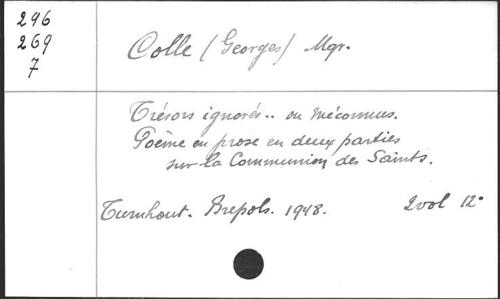 296
269
7
Colle (Georges) Mgr.
Trésors ignorés.. ou méconnus.
Poème en prose en deux parties
sur la Communion des Saints.
Turnhout. Brepols. 1948. 2vol 12°